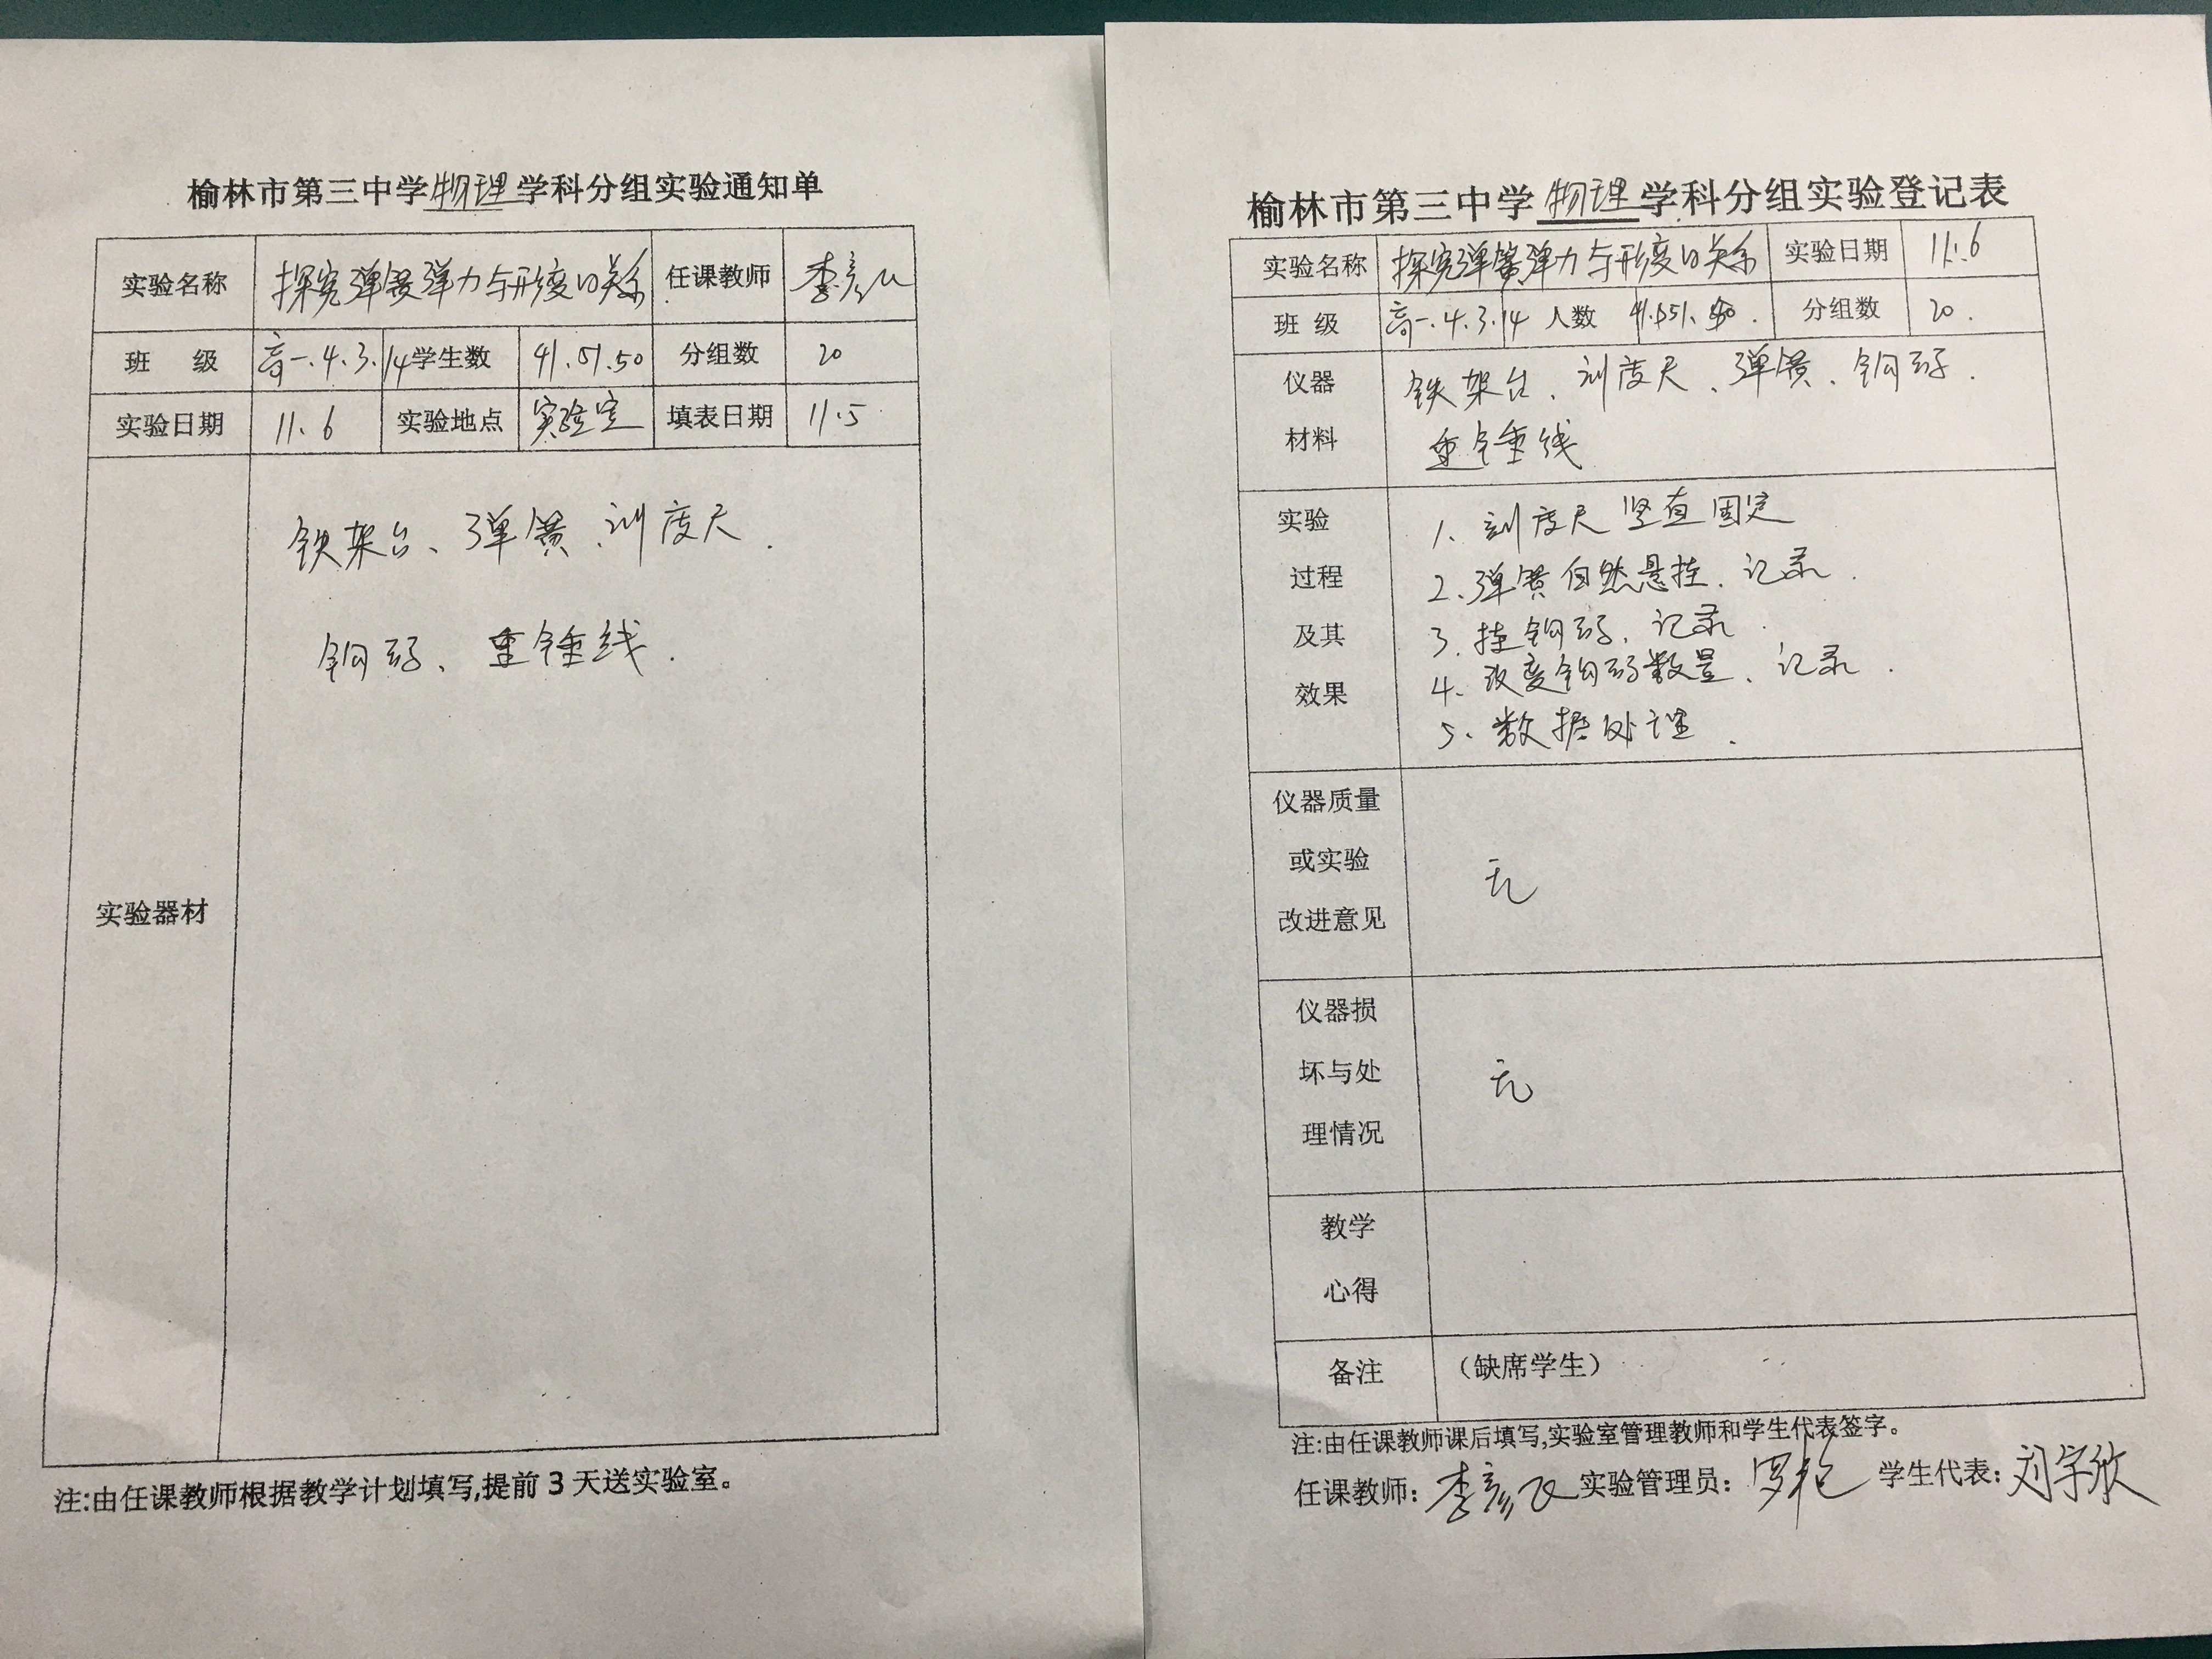 榆林市第三中学物理学科分组实验通知单
实验名称 探究弹簧弹力与形变的关系 任课教师 李彦
班 级 高一.4.3.14 学生数 41.51.50 分组数 20
实验日期 11.6 实验地点 实验室 填表日期 11.5
实验器材
铁架台、弹簧、刻度尺.
钩码、重锤线.
注:由任课教师根据教学计划填写,提前3天送实验室。
榆林市第三中学物理学科分组实验登记表
实验名称 探究弹簧弹力与形变的关系 实验日期 11.6
班 级 高一.4.3.14 人数 41.51.50. 分组数 20.
仪器 材料
铁架台、刻度尺、弹簧、钩码.
重锤线
实验 过程 及其 效果
1. 刻度尺竖直固定
2. 弹簧自然悬挂、记录.
3. 挂钩码、记录.
4. 改变钩码数量、记录.
5. 数据处理.
仪器质量
或实验 无
改进意见
仪器损
坏与处 无
理情况
教学
心得
备注 （缺席学生）
注:由任课教师课后填写,实验室管理教师和学生代表签字。
任课教师: 李彦 实验管理员: 罗 学生代表: 刘宇欣